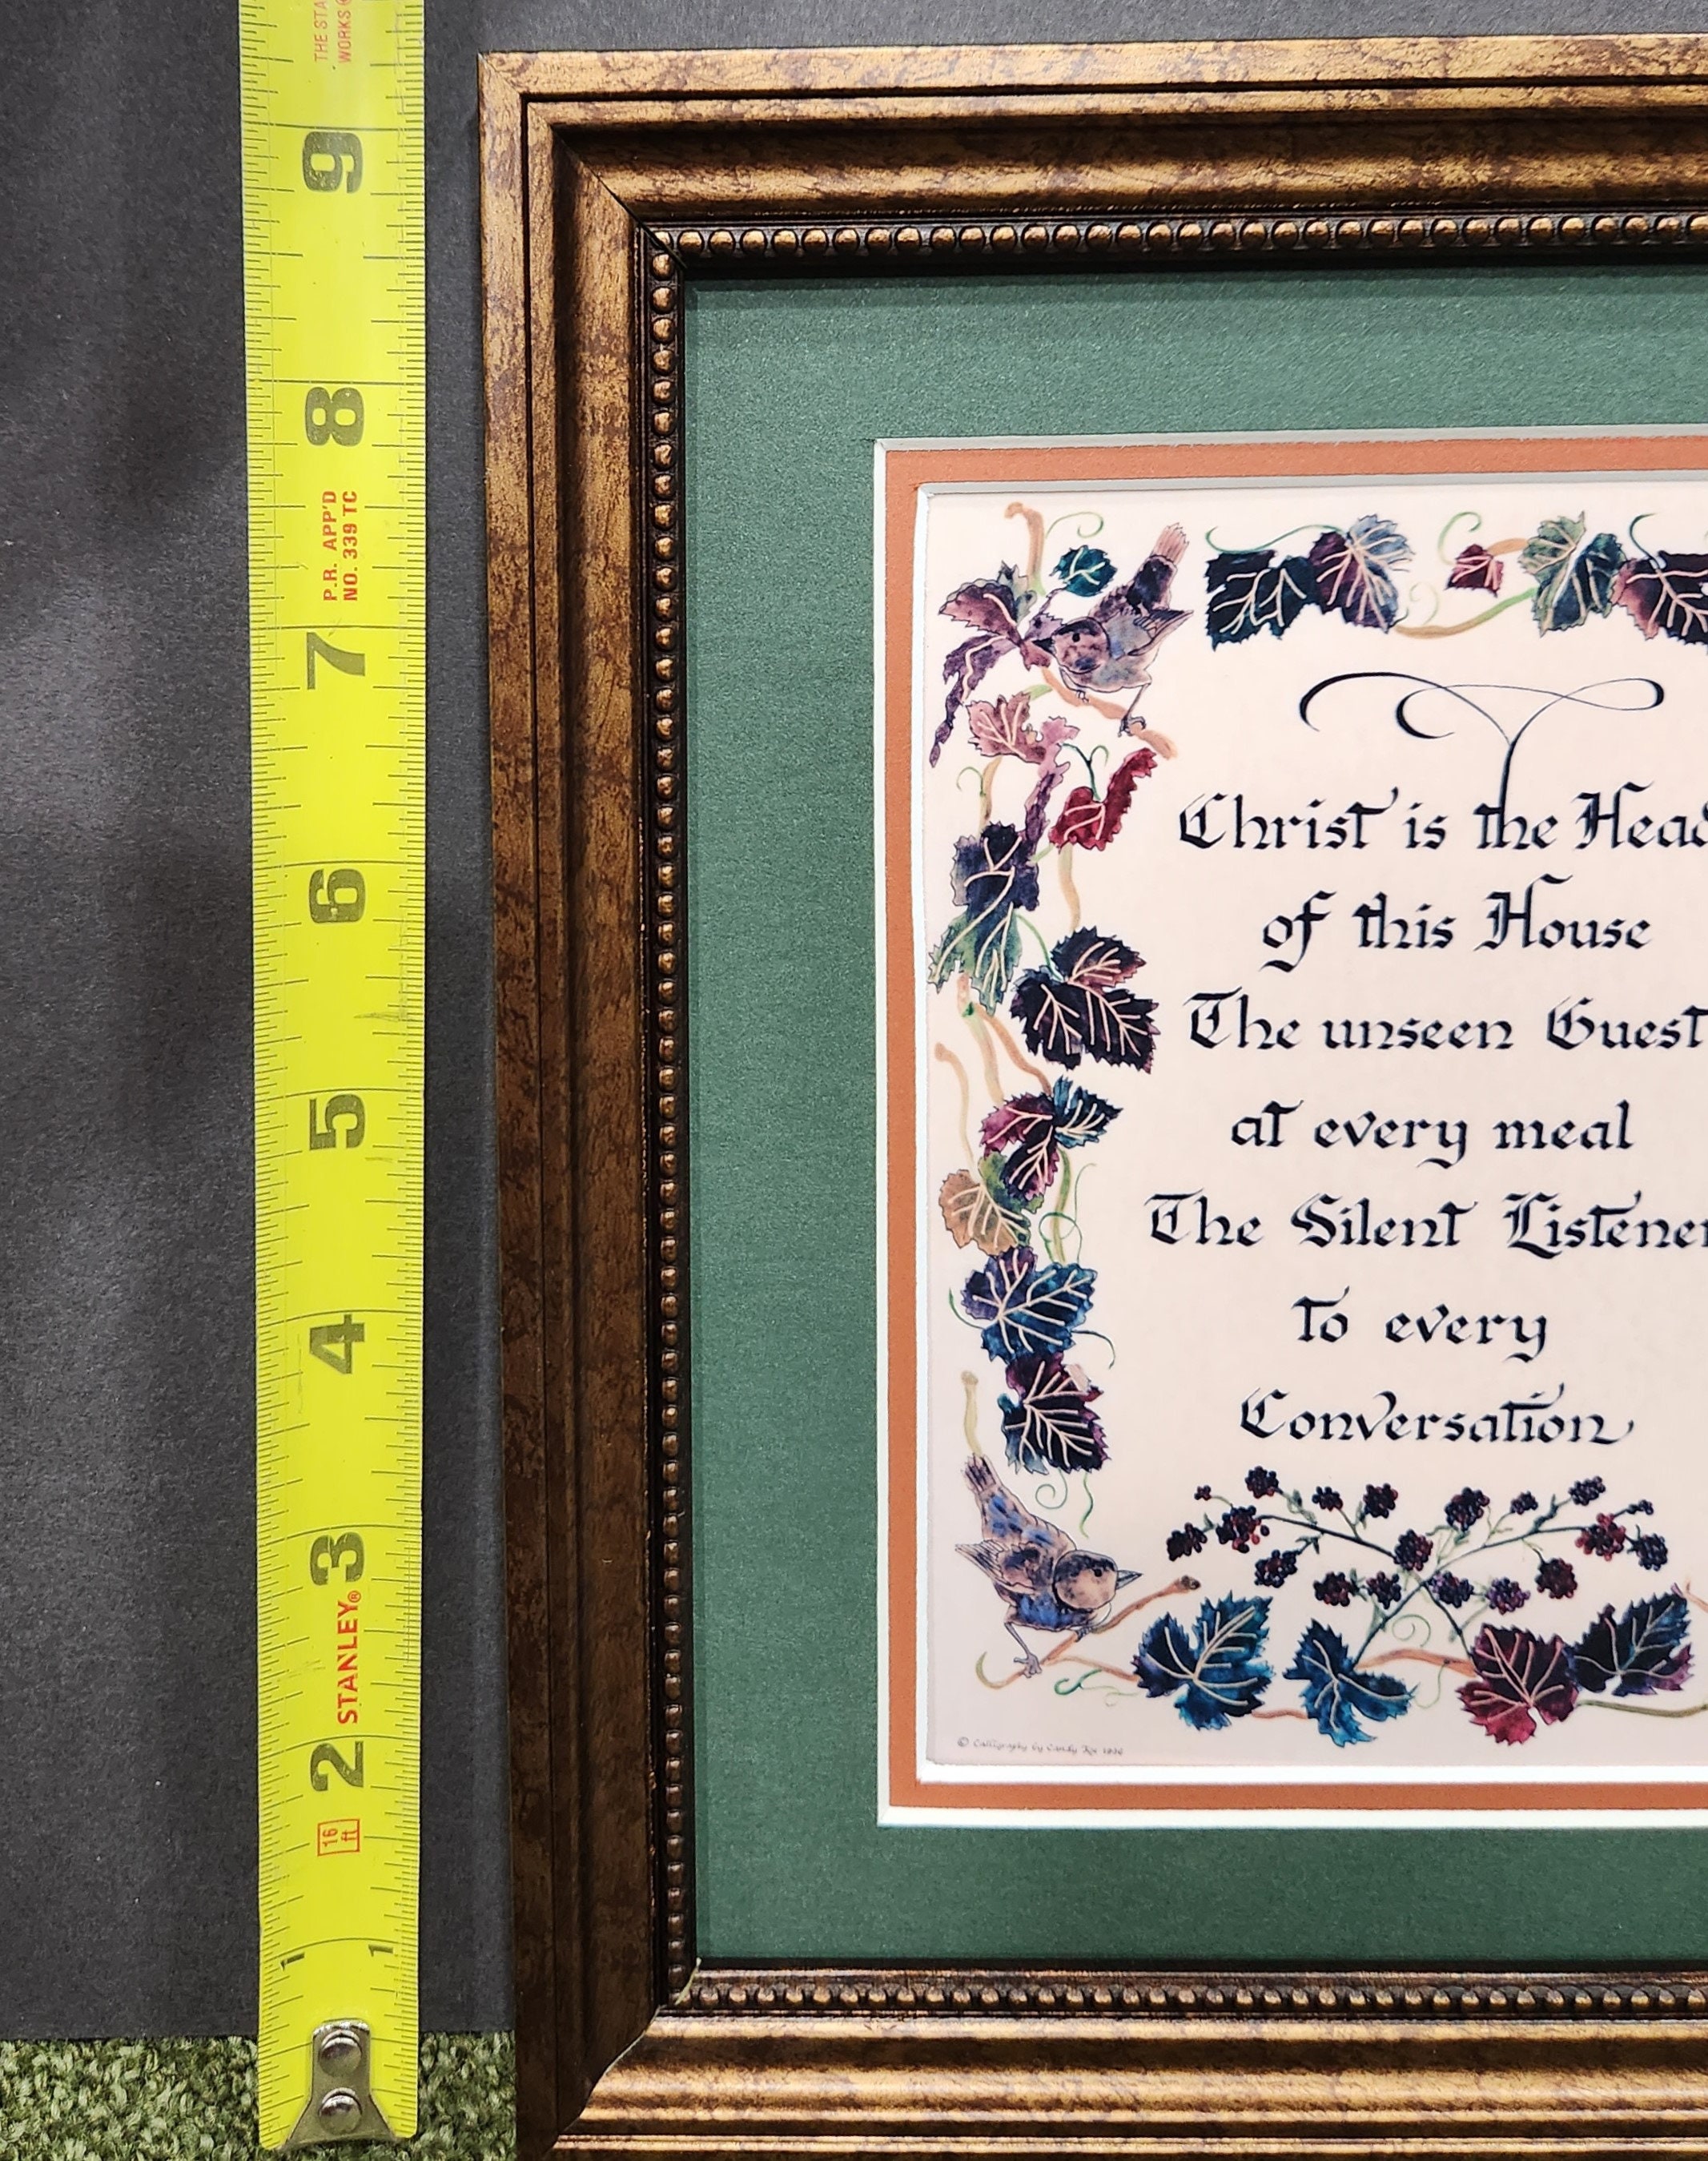 THE STA
WORKS
9
8
P.R. APP'D
NO. 339 TC
7
6
5
4
3
STANLEY®
2
16 ft
1 1
Christ is the Head
of this House
The unseen Guest
at every meal
The Silent Listener
To every
Conversation
© Calligraphy by Candy